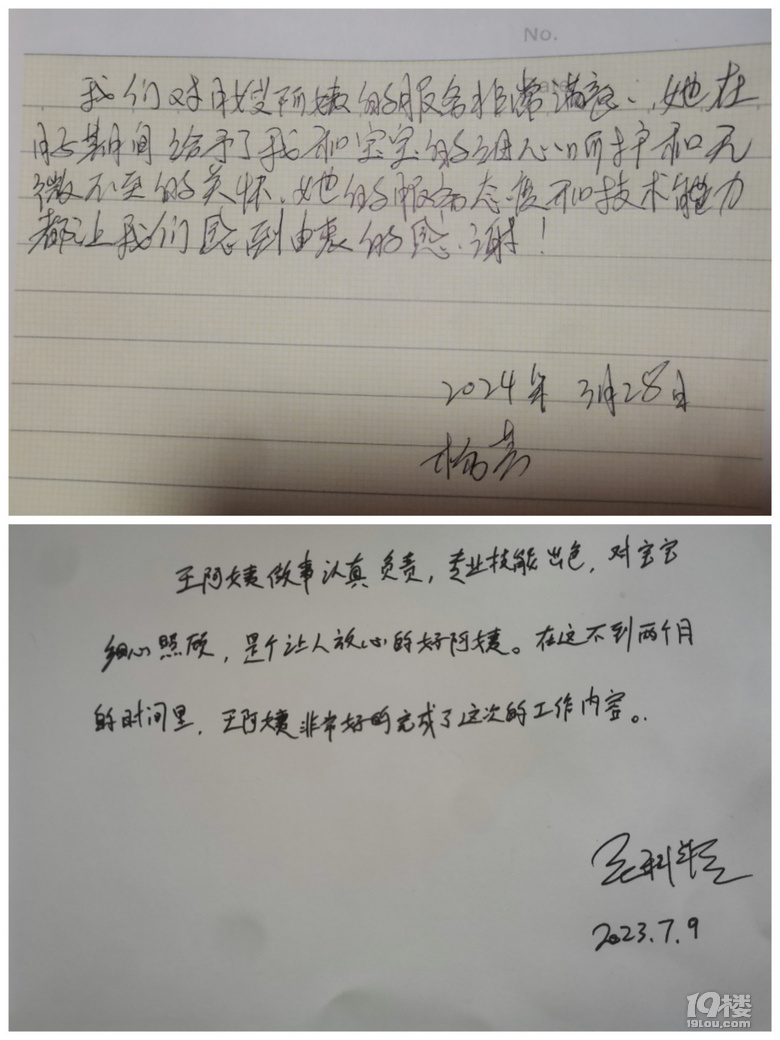 No.
我们对月嫂阿姨的服务非常满意、她在
月子期间给予了我和宝宝的细心呵护和无
微不至的关怀、她的服务态度和技术能力
都让我们感到由衷的感谢!
2024年 3月28日
杨
王阿姨做事认真负责，专业技能出色，对宝宝
细心照顾，是个让人放心的好阿姨。在这不到两个月
的时间里，王阿姨非常好的完成了这次的工作内容。
2023.7.9
19楼
19lou.com